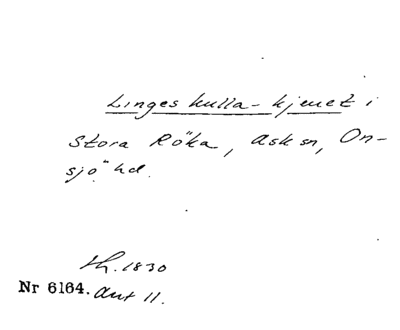 Lingeskulla-kjerret i
Stora Röka, Ask sn, On-
sjö hd.
th. 1830
Nr 6164. Ant 11.